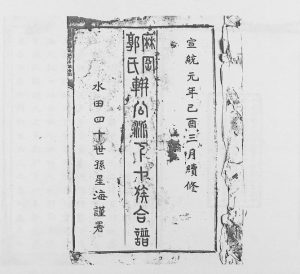 宣統元年己酉三月續修
麻岡
郭氏
耕公派下七族合譜
水田四十世孫星海謹署